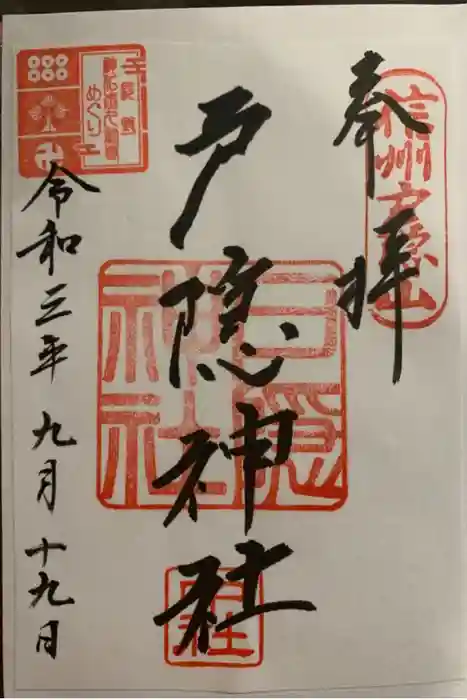 奉拝
信州戸隠山
戸隠神社
戸隠神社
中社
令和三年九月十九日
めぐり